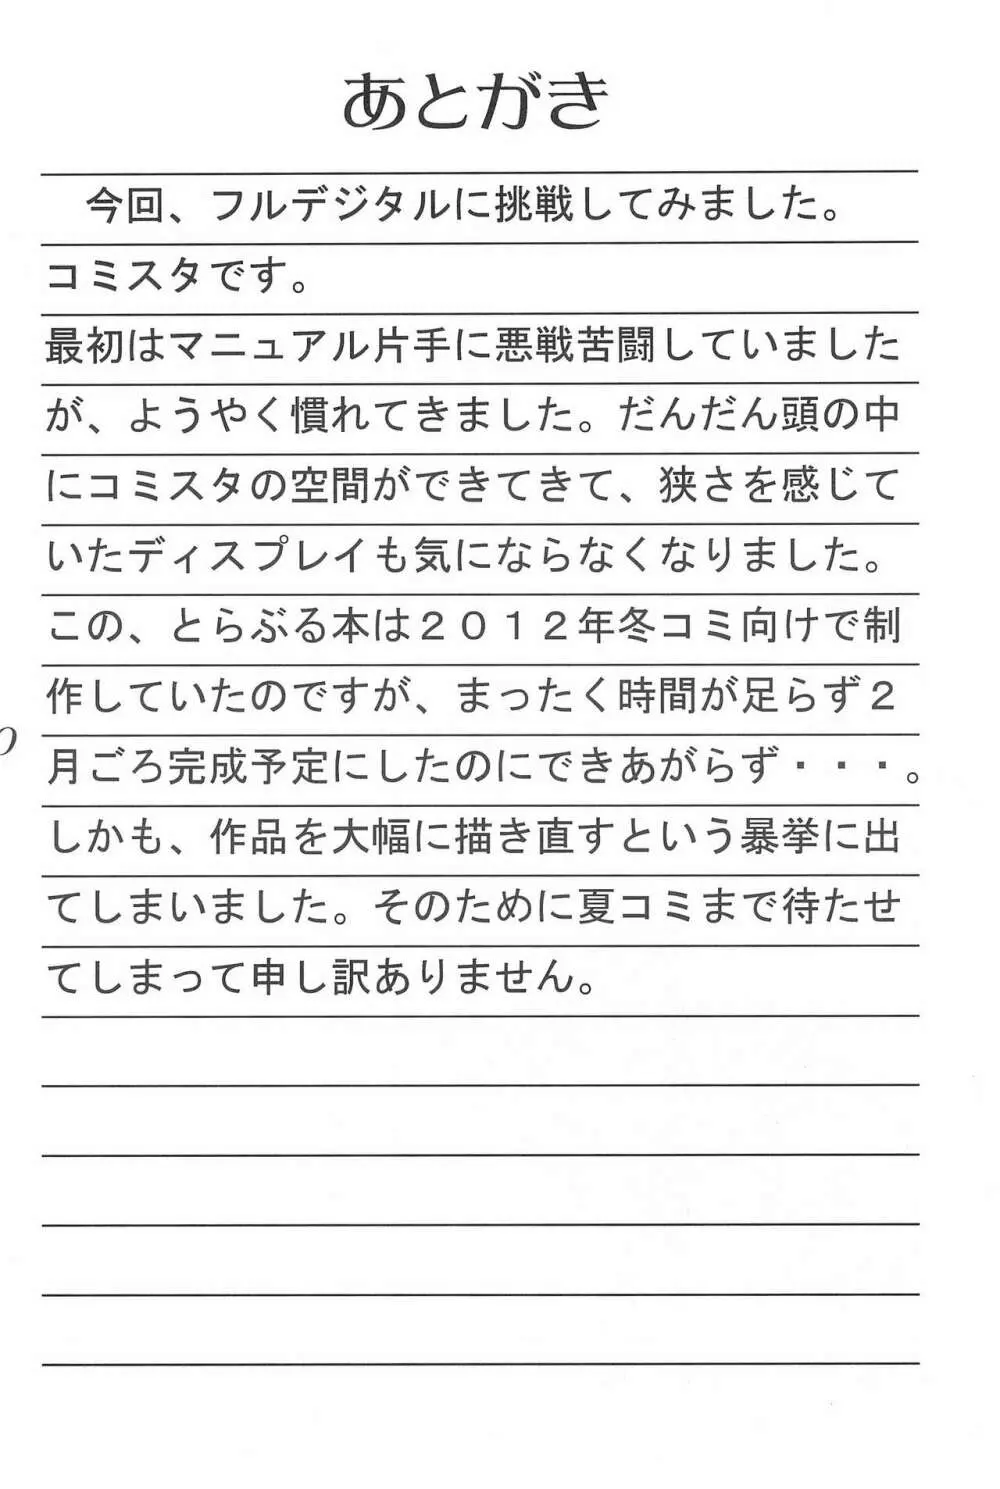 あとがき
　今回、フルデジタルに挑戦してみました。
コミスタです。
最初はマニュアル片手に悪戦苦闘していました
が、ようやく慣れてきました。だんだん頭の中
にコミスタの空間ができてきて、狭さを感じて
いたディスプレイも気にならなくなりました。
この、とらぶる本は２０１２年冬コミ向けで制
作していたのですが、まったく時間が足らず２
月ごろ完成予定にしたのにできあがらず・・・。
しかも、作品を大幅に描き直すという暴挙に出
てしまいました。そのために夏コミまで待たせ
てしまって申し訳ありません。